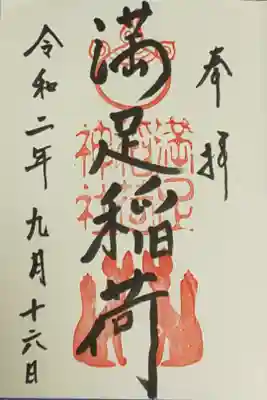 奉拝
満足稲荷
満足稲荷神社
令和二年九月十六日